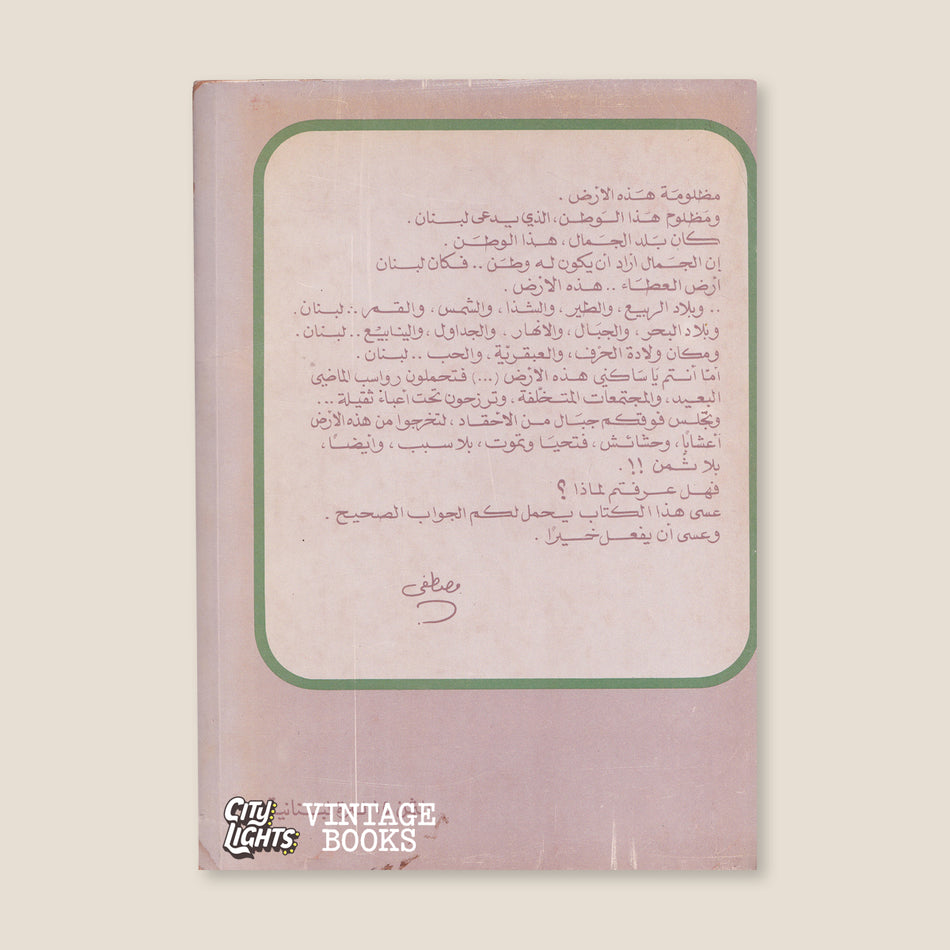 مظلومة هذه الأرض .
ومظلوم هذا الوطن ، الذي يدعى لبنان .
كان بلد الجمال ، هذا الوطن .
إن الجمال أراد أن يكون له وطن .. فكان لبنان
أرض العطاء .. هذه الأرض .
.. وبلاد الربيع ، والطير ، والشذا ، والشمس ، والقمر .. لبنان .
وبلاد البحر ، والجبال ، والأنهار . والجداول ، والينابيع .. لبنان .
ومكان ولادة الحرف ، والعبقريّة ، والحب .. لبنان .
أمّا أنتم يا ساكني هذه الأرض (...) فتحملون رواسب الماضي
البعيد ، والمجتمعات المتخلّفة ، وترزحون تحت أعباء ثقيلة ...
وتجلس فوقكم جبال من الأحقاد ، لتخرجوا من هذه الأرض
أعشابًا ، وحشائش ، فتحيا وتموت ، بلا سبب ، وأيضًا ،
بلا ثمن !! .
فهل عرفتم لماذا ؟
عسى هذا الكتاب يحمل لكم الجواب الصحيح .
وعسى أن يفعل خيرًا .
مصطفى
CITY LIGHTS VINTAGE BOOKS